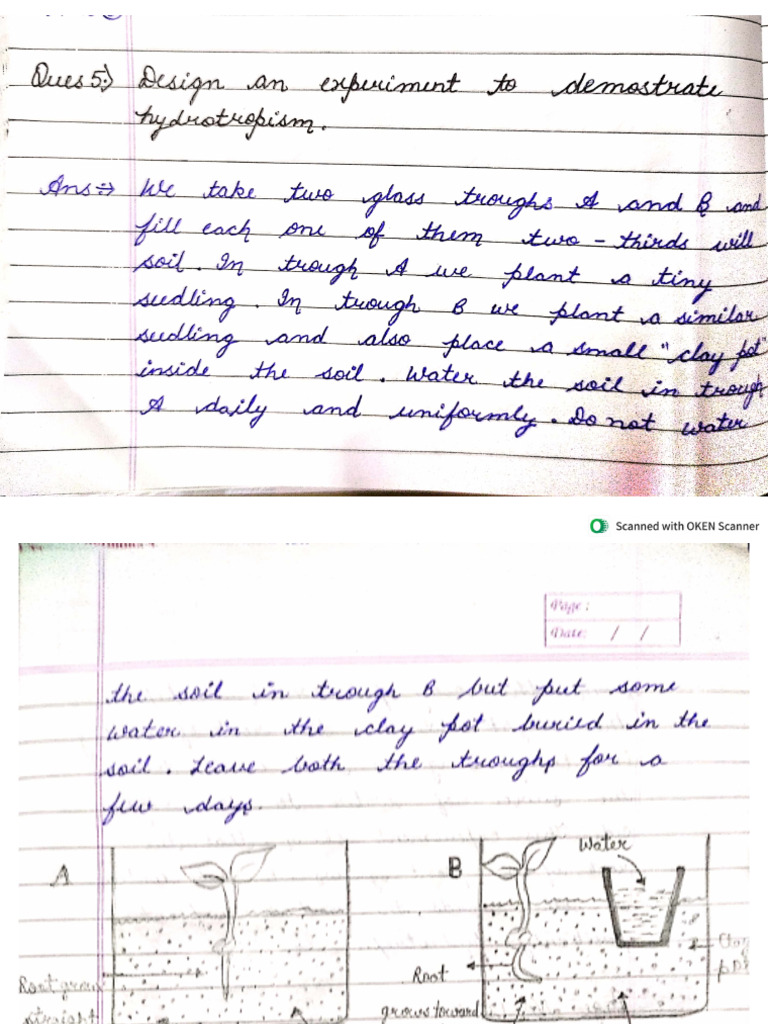 Ques 5.) Design an experiment to demostrate
hydrotropism.
Ans ⇒ We take two glass troughs A and B and
fill each one of them two - thirds will
soil. In trough A we plant a tiny
seedling. In trough B we plant a similar
seedling and also place a small "clay pot"
inside the soil. Water the soil in trough
A daily and uniformly. Do not water
Scanned with OKEN Scanner
Page :
Date: / /
the soil in trough B but put some
water in the clay pot buried in the
soil. Leave both the troughs for a
few days.
A
B
Water
Root
grows toward
Root grow
straight